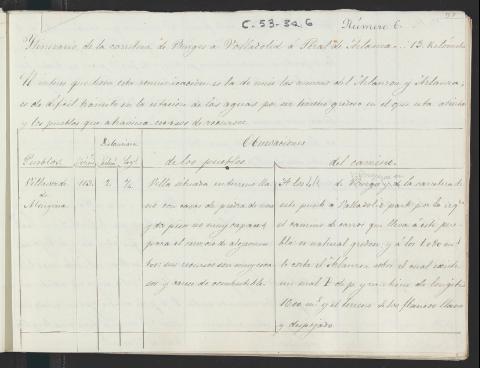 C.53-3a 6 Número 6.
Itinerario de la carretera de Burgos a Valladolid á Peral de Arlanza... 13 Kilómetros
El interes que tiene esta comunicacion es la de unir las cuencas del Arlanzon y Arlanza,
es de dificil transito en la estacion de las aguas por ser terreno gredoso en el que esta abierto
y los pueblos que atraviesa escasos de recursos.
Distancias Observaciones
Pueblos de los pueblos. del camino.
Villaverde
de
Mongina
163. 2. 2/4
Villa situada en terreno lla-
no con casas de piedra de una
y dos pisos no muy capaces
para el servicio de alojamien-
tos: sus recursos son muy esca-
sos y carece de combustible.
A los de Burgos y de la carretera de
este punto á Valladolid parte por la izqª
el camino de carros que lleva á este pue-
blo: es natural gredoso y á los
corta el Arlanzon sobre el cual existe
un mal de longitud
y el terreno de los flancos llano
y despejado.